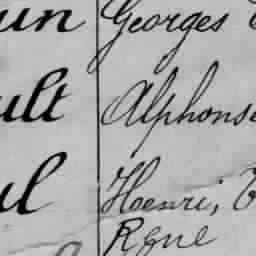 un Georges
ult Alphonse
ul Henri,
René